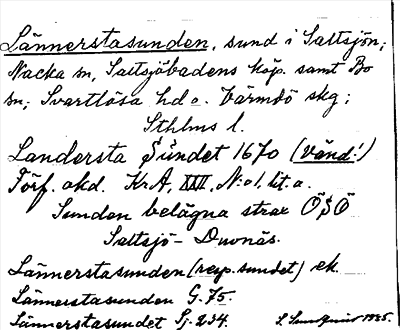 Lännerstasunden, sund i Saltsjön;
Nacka sn, Saltsjöbadens köp. samt Bo
sn; Svartlösa hd o. Värmdö skg;
Sthlms l.
Landersta Sündet 1670 (Vänd!)
Förf. akd. Kr.A, XXV, N:o 1, lit. a.
Sunden belägna strax ÖSÖ
Saltsjö-Duvnäs.
Lännerstasunden (resp. sundet) ek.
Lännerstasunden G. 75.
Lännerstasundet Sj. 234.
1925.